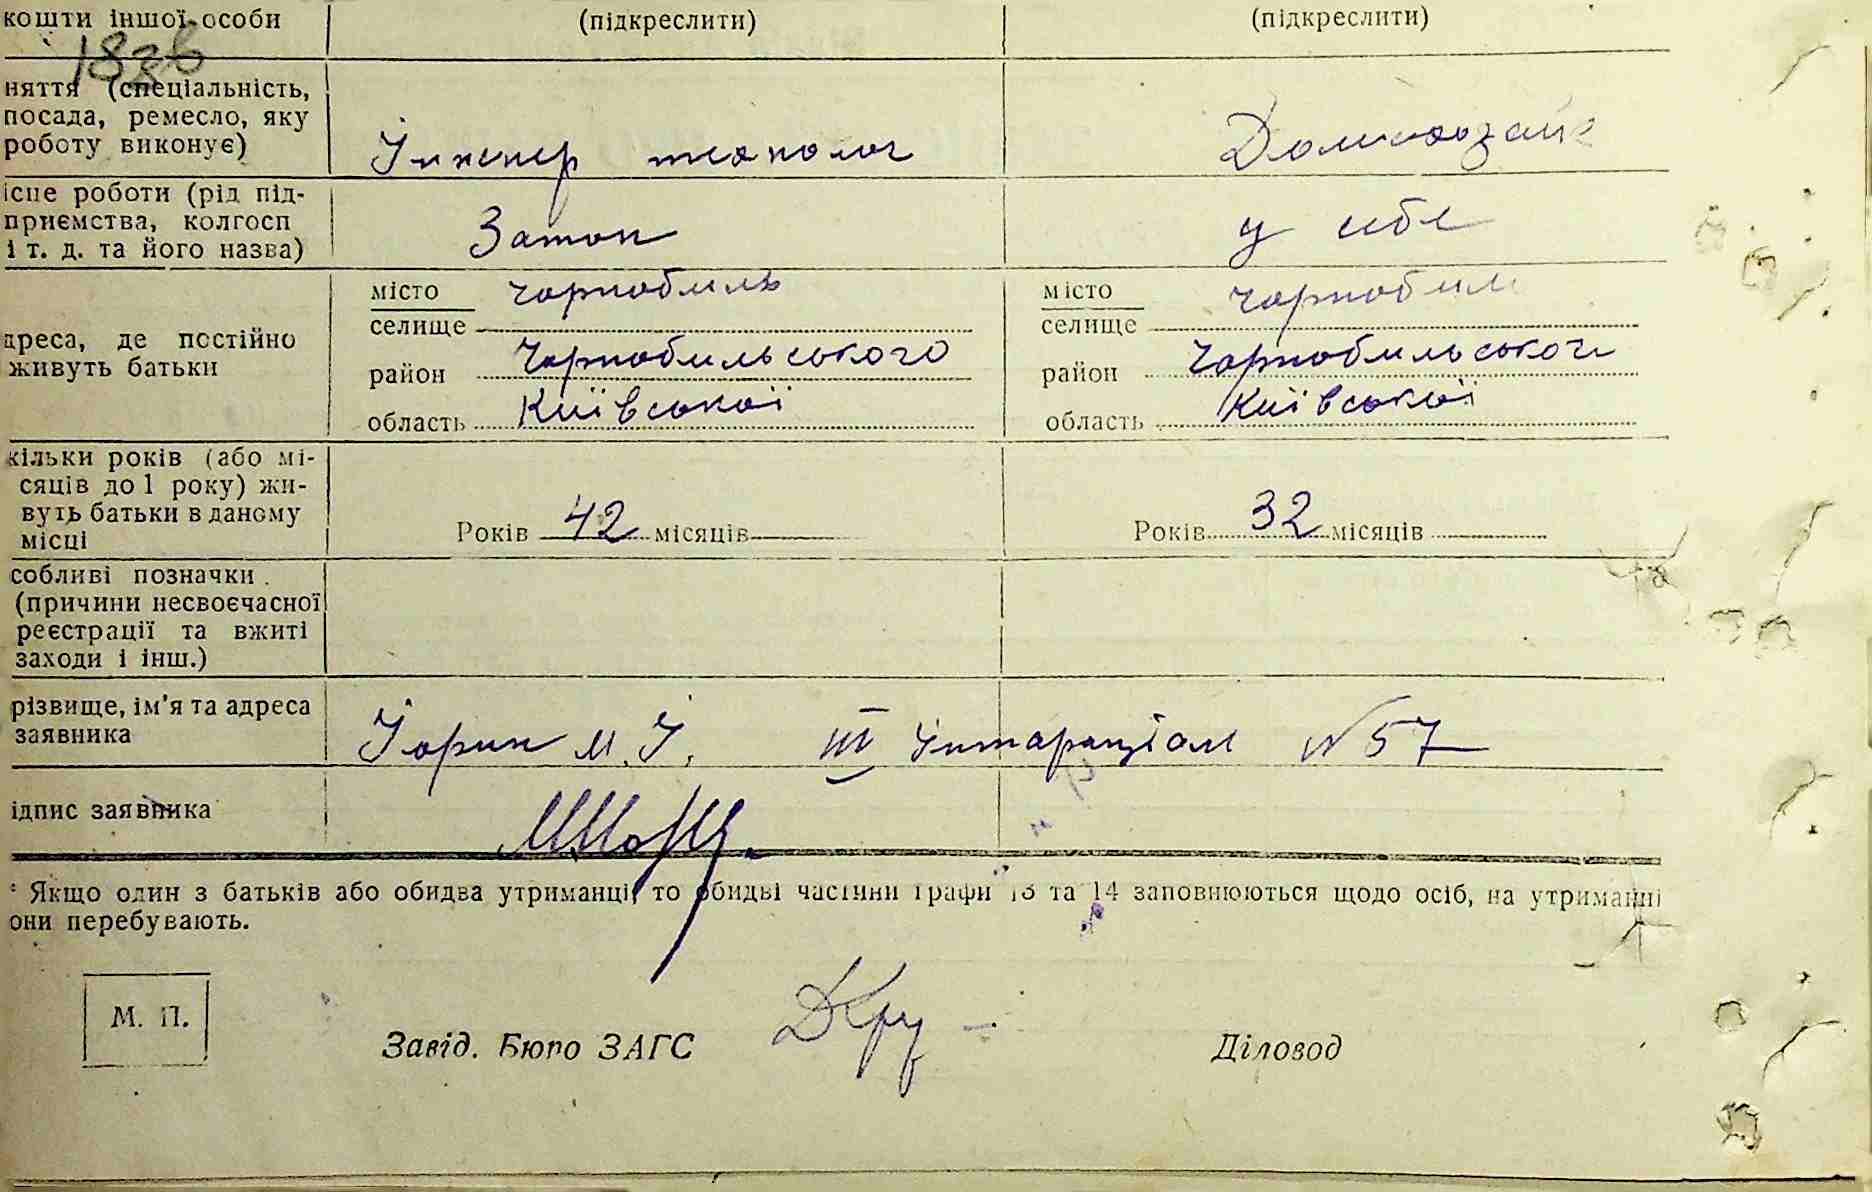 кошти іншої особи (підкреслити) (підкреслити)
183в
няття (спеціальність,
посада, ремесло, яку
роботу виконує) Інженер технолог Домохозяйк
ісце роботи (рід під-
приємства, колгосп
і т. д. та його назва) Затон у себе
місто Чорнобиль місто Чорнобил
селище селище
дреса, де постійно
живуть батьки
район Чорнобильського район Чорнобильського
область Київської область Київської
кільки років (або мі-
сяців до 1 року) жи-
вуть батьки в даному
місці Років 42 місяців Років 32 місяців
собливі позначки
(причини несвоєчасної
реєстрації та вжиті
заходи і інш.)
різвище, ім'я та адреса
заявника М. І. III Інтернаціонал № 57
ідпис заявника
Якщо один з батьків або обидва утриманці, то обидві частини графи 13 та 14 заповнюються щодо осіб, на утриманні
они перебувають.
М. П.
Завід. Бюро ЗАГС Діловод